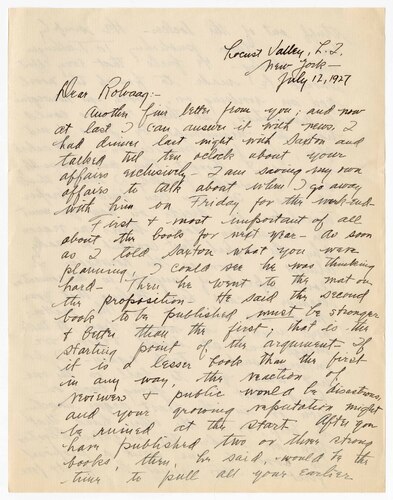 Locust Valley, L.I.
New York
July 12, 1927
Dear Rolvaag:-
Another fine letter from you; and now
at last I can answer it with news. I
had dinner last night with Saxton and
talked till ten oclock about your
affairs exclusively - I am saving my own
affairs to talk about when I go away
with him on Friday for the week-end.
First & most important of all
about the books for next year - As soon
as I told Saxton what you were
planning, I could see he was thinking
hard - Then he went to the mat on
the proposition. He said the second
book to be published must be stronger
& better than the first; that is the
starting point of the argument. If
it is a lesser book than the first
in any way, the reaction of
reviewers & public would be disastrous,
and your growing reputation might
be ruined at the start. After you
have published two or three strong
books, then, he said, would be the
time to pull all your earlier